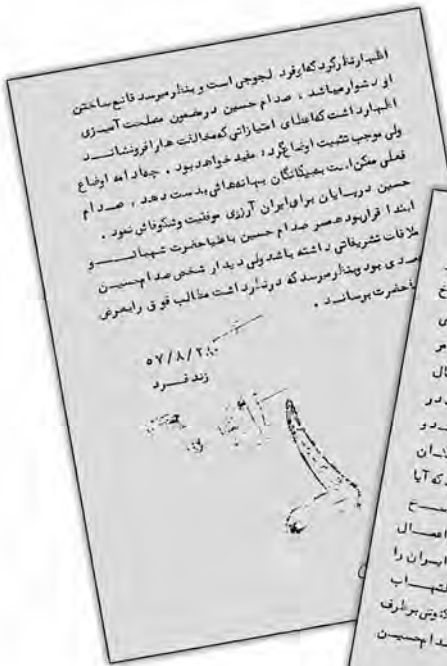 اظهارنظر کرد که او فرد لجوجی است و بنظر میرسد قانع ساختن
او دشوار میباشد ، صدام حسین در ضمین مصلحت آمیزی
اظهار داشت که اعطای امتیازاتی که مخالفت ها را فرو نشانـــد
ولی موجب تثبیت اوضاع گردد مفید خواهد بود . چه ادامه اوضاع
فعلی ممکن است به بیگانگان بهانه هائی بدست دهد ، صـــدام
حسین در پایان برای ایران آرزوی موفقیت و شکوفائی نمود .
ابتدا قرار بود همسر صدام حسین با علیاحضرت شهبانــــو
ملاقات تشریفاتی داشته باشد ولی دیدار شخص صدام حسیـن
بود و بنظر میرسد که در نظر داشت مطالب فوق را بعرض
حضرت برسانـد .
۵۷/۸/۲۰
زند فــرد
خ
ی
مر
ال
در
دو
ان
که آیا
خ
اعمــال
ایــران را
التهــاب
کنونی برطرف
صدام حسیـن